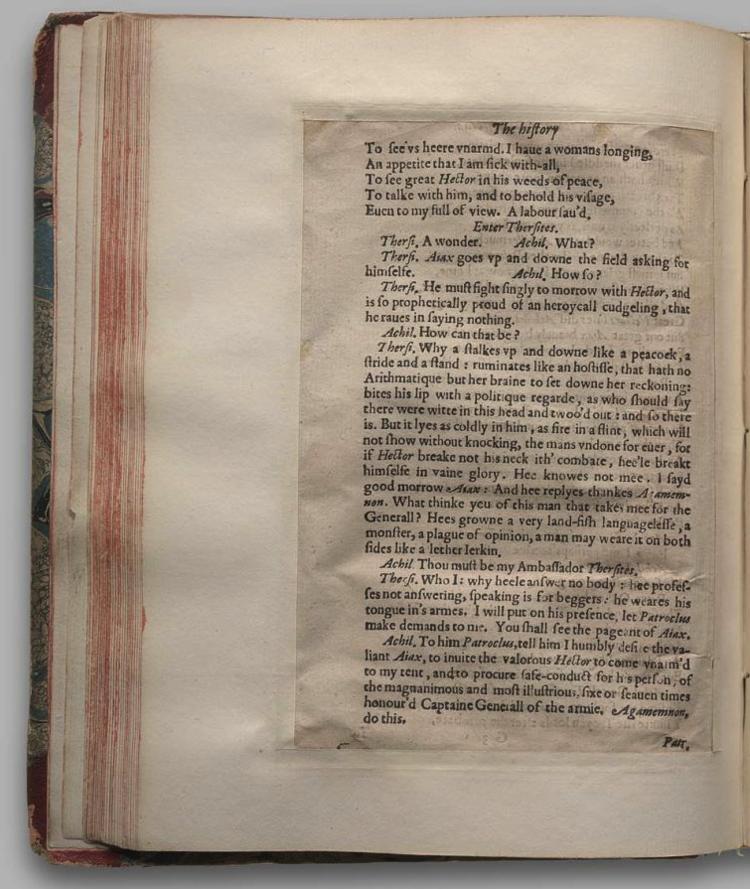 The hiſtory
To ſee'vs heere vnarmd. I haue a womans longing,
An appetite that I am ſick with-all,
To ſee great Hector in his weeds of peace,
To talke with him, and to behold his viſage,
Euen to my full of view. A labour ſau'd.
Enter Therſites.
Therſi. A wonder. Achil. What?
Therſi. Aiax goes vp and downe the field asking for
himſelfe. Achil. How ſo?
Therſi. He muſt fight ſingly to morrow with Hector, and
is ſo prophetically proud of an heroycall cudgeling, that
he raues in ſaying nothing.
Achil. How can that be?
Therſi. Why a ſtalkes vp and downe like a peacock, a
ſtride and a ſtand: ruminates like an hoſtiſſe, that hath no
Arithmatique but her braine to ſet downe her reckoning:
bites his lip with a politique regarde, as who ſhould ſay
there were witte in this head and twoo'd out: and ſo there
is. But it lyes as coldly in him, as fire in a flint, which will
not ſhow without knocking, the mans vndone for euer, for
if Hector breake not his neck ith' combate, hee'le breakt
himſelfe in vaine glory. Hee knowes not mee. I ſayd
good morrow Aiax: And hee replyes thankes Agamem-
non. What thinke you of this man that takes mee for the
Generall? Hees growne a very land-fiſh languageleſſe, a
monſter, a plague of opinion, a man may weare it on both
ſides like a lether Ierkin.
Achil. Thou muſt be my Ambaſſador Therſites.
Therſi. Who I: why heele anſwer no body: hee profeſ-
ſes not anſwering, ſpeaking is for beggers: he weares his
tongue in's armes. I will put on his preſence, let Patroclus
make demands to me. You ſhall ſee the pageant of Aiax.
Achil. To him Patroclus, tell him I humbly deſire the va-
liant Aiax, to inuite the valorous Hector to come vnarm'd
to my tent, and to procure ſafe-conduct for his perſon, of
the magnanimous and moſt illuſtrious, ſixe or ſeauen times
honour'd Captaine Generall of the armie. Agamemnon,
do this.
Patr.